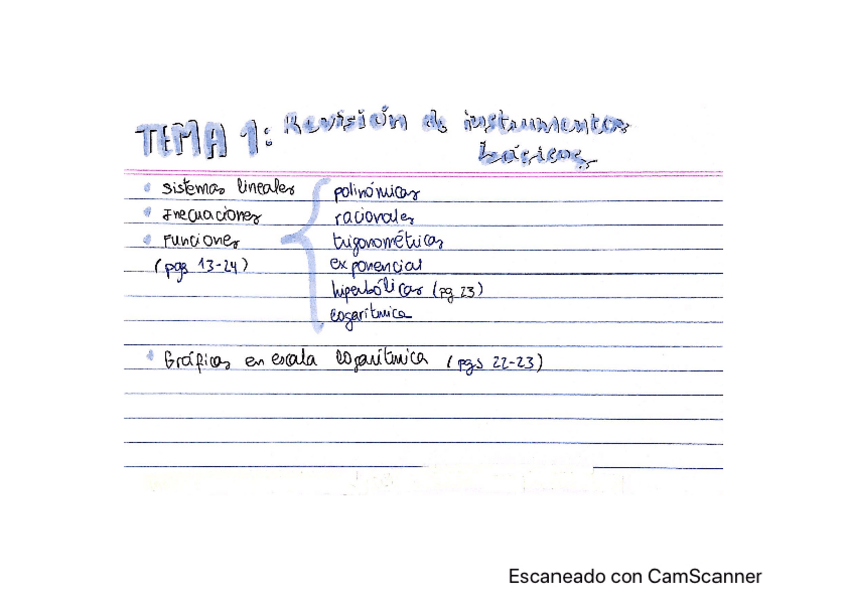 TEMA 1: Revisión de instrumentos
básicos
• sistemas lineales
• Inecuaciones
• Funciones
(pgs 13-24)
polinómicas
racionales
trigonométricas
exponencial
hiperbólicas (pg 23)
logarítmica
• Gráficas en escala logarítmica (pgs 22-23)
Escaneado con CamScanner